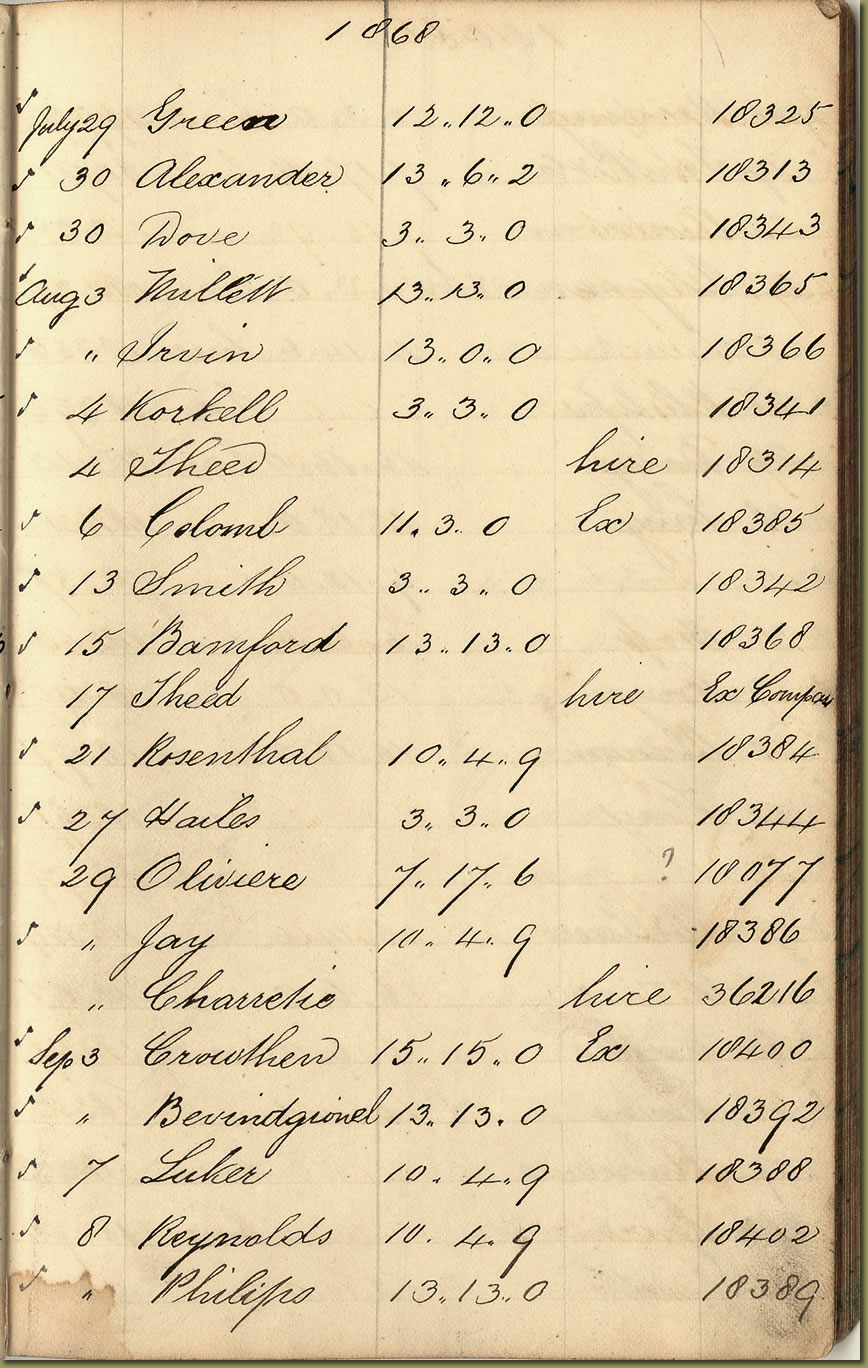 1868
July 29 Green 12.. 12.. 0 18325
30 Alexander 13.. 6.. 2 18313
30 Dove 3.. 3.. 0 18343
Aug 3 Millett 13.. 13.. 0 18365
" Irvin 13.. 0.. 0 18366
4 Korkell 3.. 3.. 0 18341
4 Theed hire 18314
6 Colomb 11. 3. 0 Ex 18385
13 Smith 3.. 3.. 0 18342
15 Bamford 13.. 13.. 0 18368
17 Theed hire Ex Compan
21 Rosenthal 10.. 4.. 9 18384
27 Hailes 3.. 3.. 0 18344
29 Oliviere 7.. 17.. 6 ? 18077
" Jay 10.. 4.. 9 18386
" Charretie hire 36216
Sep 3 Crowthen 15.. 15.. 0 Ex 18400
" 13.. 13. 0 18392
7 Luker 10. 4. 9 18388
8 Reynolds 10. 4. 9 18402
" Philips 13.. 13.. 0 18389